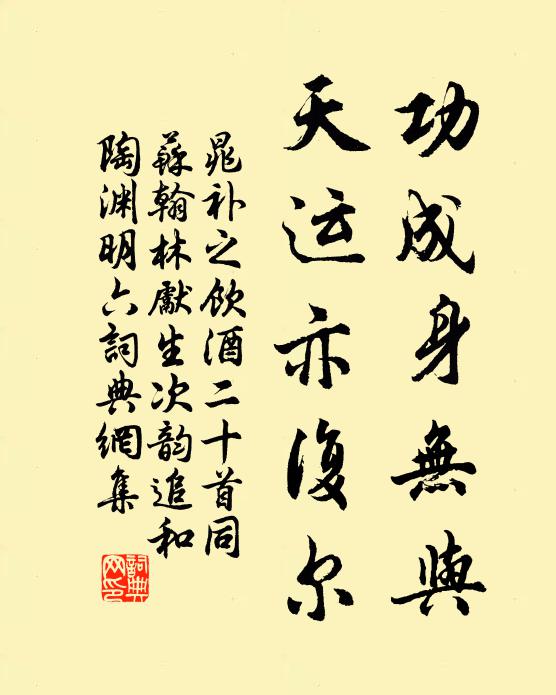 功成身無與
天运亦復尔
晁补之飲酒二十首同
蘇翰林獻生次韵追和
陶渊明六詞典網集
詞典网印